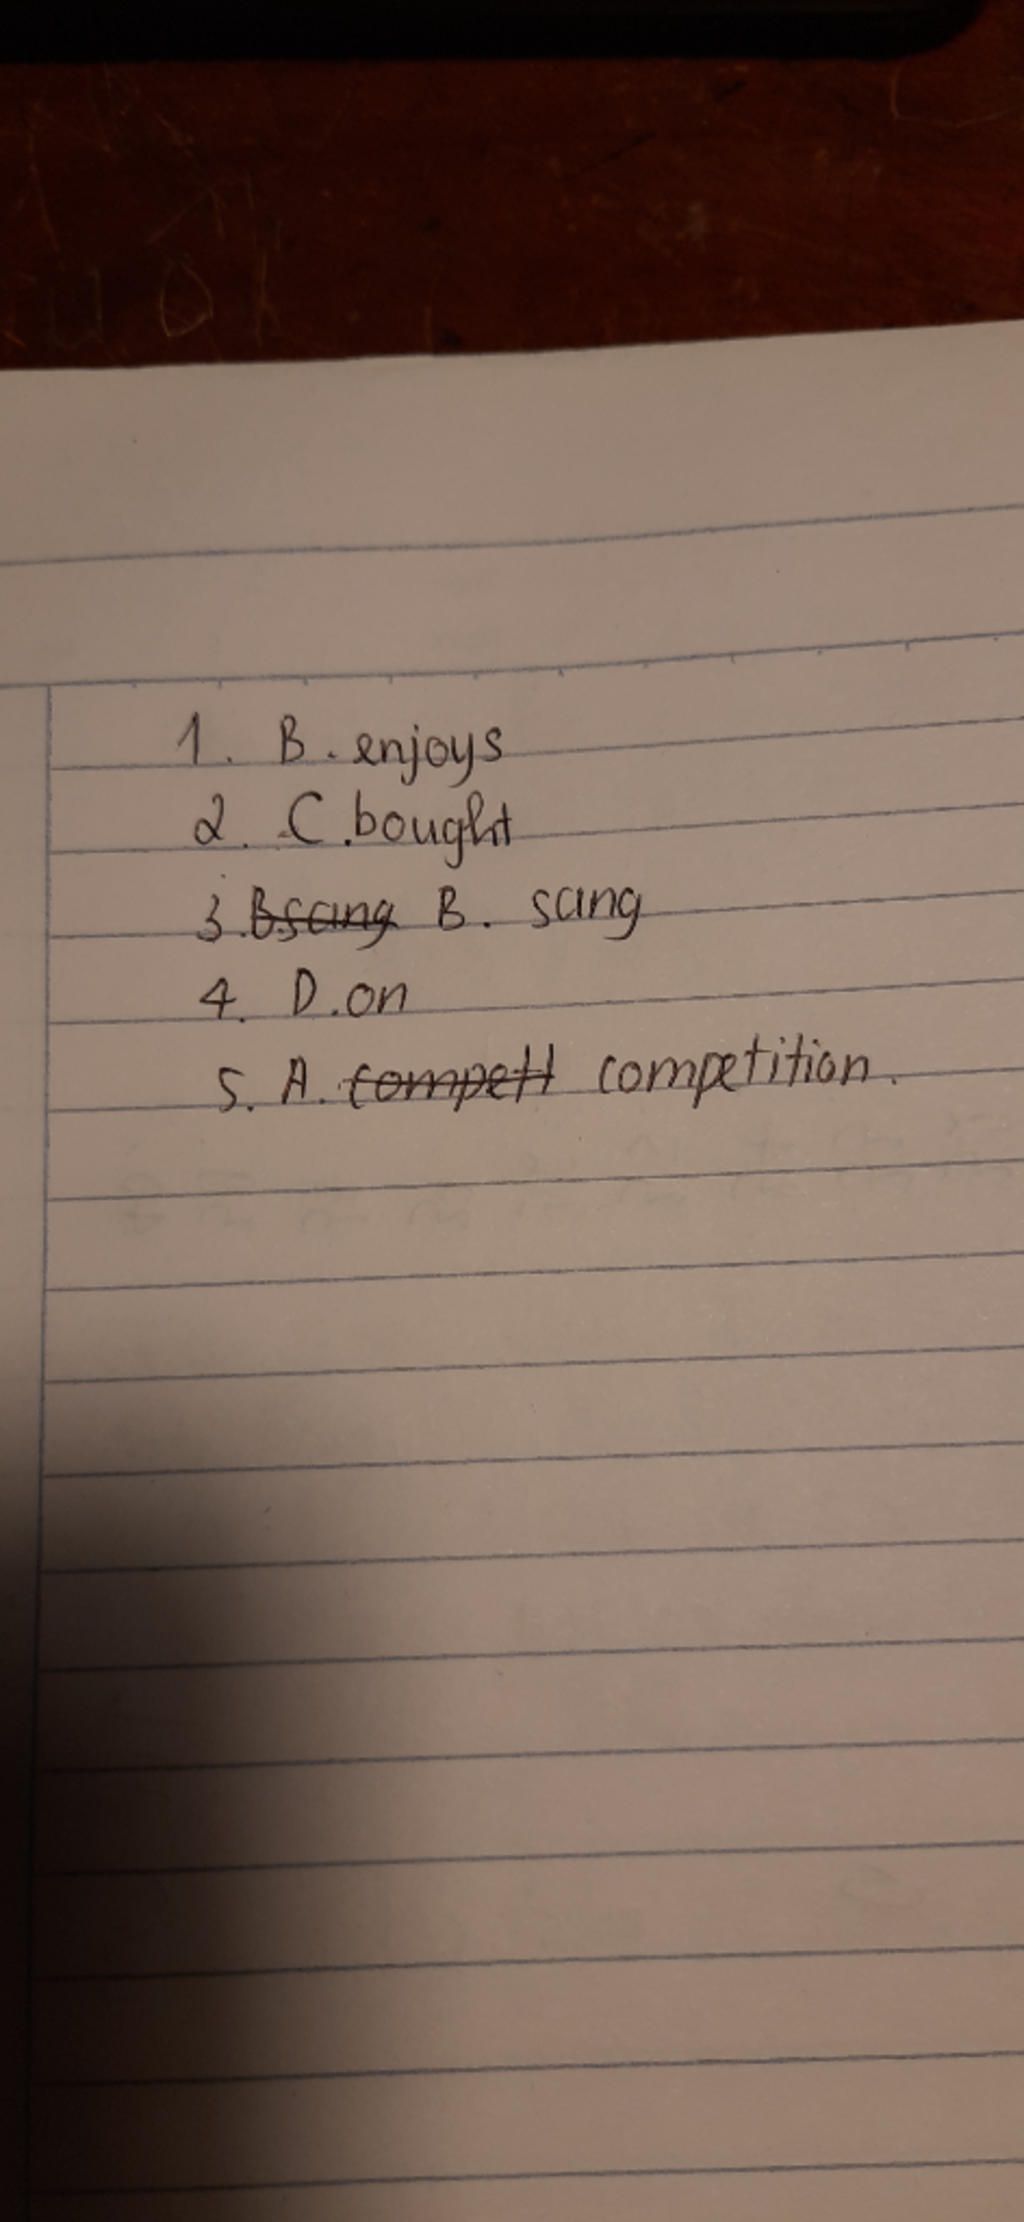 1. B. enjoys
2. C. bought
3. B sang B. sang
4. D. on
5. A. compett competition.